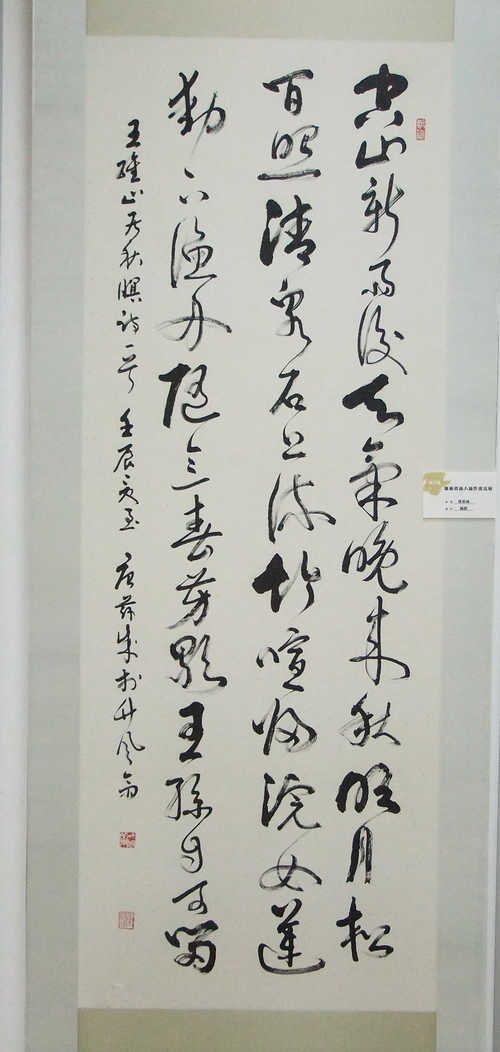 空山新雨後天氣晚来秋明月松
間照清泉石上流竹喧歸浣女蓮
動下漁舟随意春芳歇王孫自可留
王維山居秋暝詩一首 壬辰夏至